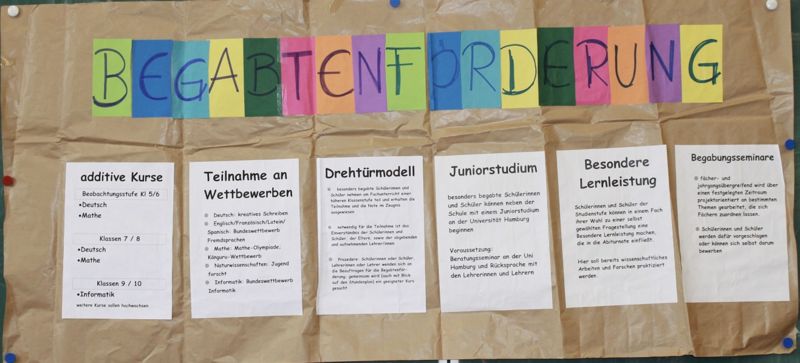 BEGABTENFÖRDERUNG
additive Kurse
Beobachtungsstufe Kl 5/6
•Deutsch
•Mathe
Klassen 7 / 8
•Deutsch
•Mathe
Klassen 9 / 10
•Informatik
weitere Kurse sollen nachwachsen
Teilnahme an
Wettbewerben
Deutsch: kreatives Schreiben
Englisch/Französisch/Latein/
Spanisch: Bundeswettbewerb
Fremdsprachen
Mathe: Mathe-Olympiade,
Känguru-Wettbewerb
Naturwissenschaften: Jugend
forscht
Informatik: Bundeswettbewerb
Informatik
Drehtürmodell
besonders begabte Schülerinnen und
Schüler nehmen am Fachunterricht einer
höheren Klassenstufe teil und erhalten die
Teilnahme und die Note im Zeugnis
ausgewiesen
notwendig für die Teilnahme ist das
Einverständnis der Schülerinnen und
Schüler, der Eltern, sowie der abgebenden
und aufnehmenden LehrerInnen
Prozedere: Schülerinnen oder Schüler,
Lehrerinnen oder Lehrer wenden sich an
die Beauftragten für die Begabtenför-
derung; gemeinsam wird (auch mit Blick
auf den Stundenplan) ein geeigneter Kurs
gesucht
Juniorstudium
besonders begabte Schülerinnen
und Schüler können neben der
Schule mit einem Juniorstudium
an der Universität Hamburg
beginnen
Voraussetzung:
Beratungsseminar an der Uni
Hamburg und Rücksprache mit
den Lehrerinnen und Lehrern
Besondere
Lernleistung
Schülerinnen und Schüler der
Studienstufe können in einem Fach
ihrer Wahl zu einer selbst
gewählten Fragestellung eine
Besondere Lernleistung machen,
die in die Abiturnote einfließt.
Hier soll bereits wissenschaftliches
Arbeiten und Forschen praktiziert
werden.
Begabungsseminare
fächer- und
jahrgangsübergreifend wird über
einen festgelegten Zeitraum
projektorientiert an bestimmten
Themen gearbeitet, die sich
Fächern zuordnen lassen.
Schülerinnen und Schüler
werden dafür vorgeschlagen
oder können sich selbst darum
bewerben